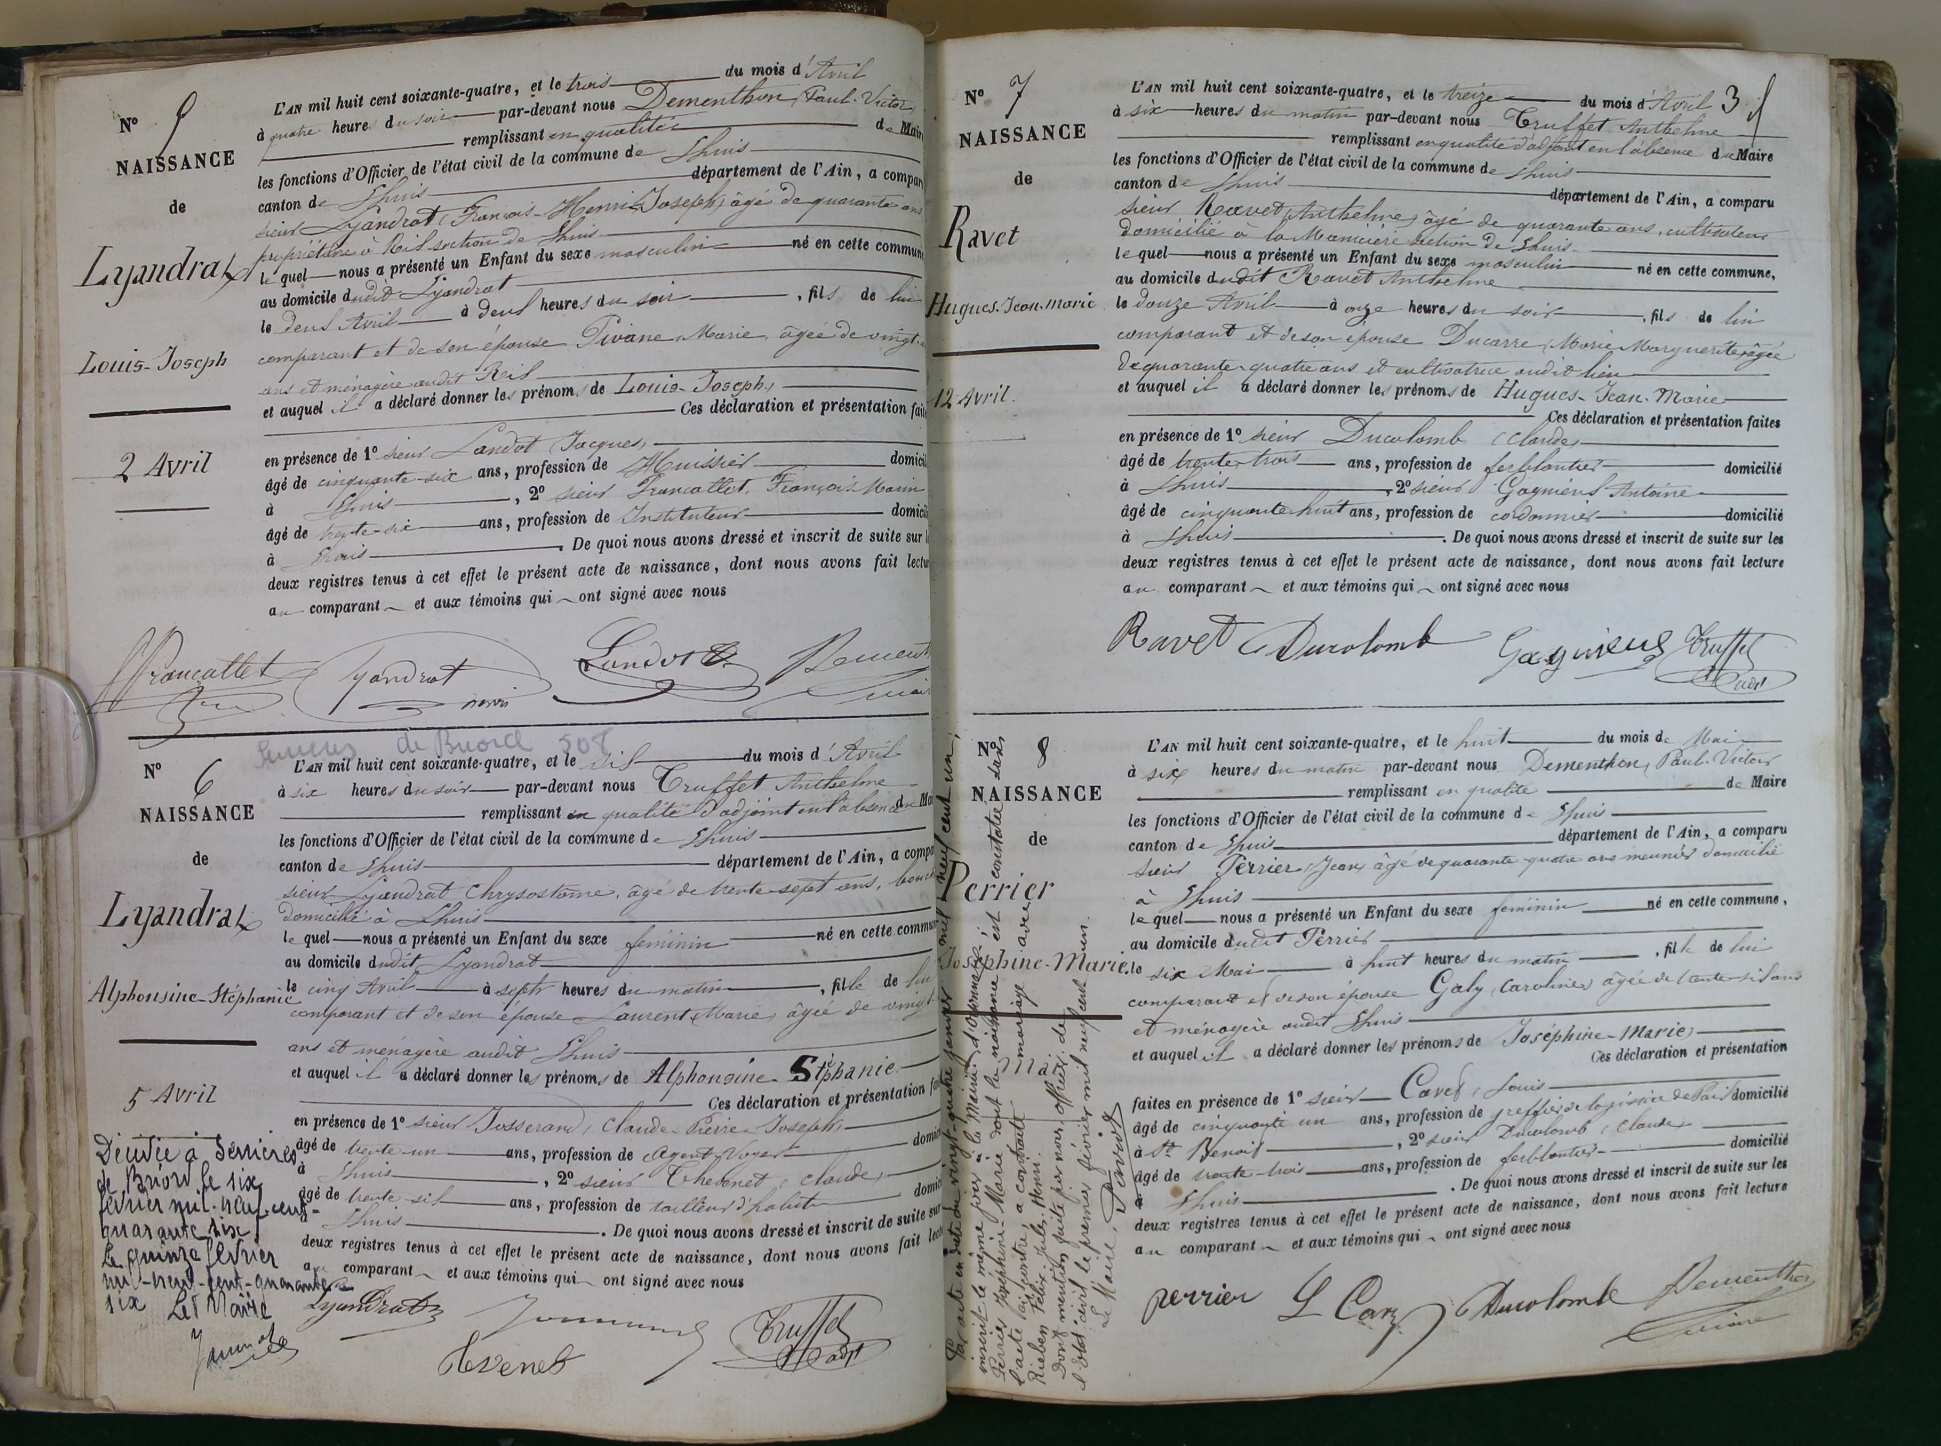 N° 5
NAISSANCE
de
Lyandrat
Louis-Joseph
2 Avril
L'AN mil huit cent soixante-quatre, et le trois du mois d'Avril
à quatre heures du soir par-devant nous Dementhon, Paul-Victor
remplissant en qualité de Maire
les fonctions d'Officier de l'état civil de la commune de Lhuis
canton de Lhuis département de l'Ain, a compar
sieur Lyandrat, François-Henri-Joseph, âgé de quarante ans
propriétaire à section de Lhuis
lequel nous a présenté un Enfant du sexe masculin né en cette commune
au domicile dudit Lyandrat
le deux Avril à deux heures du soir, fils de lui
comparant et de son épouse Pivane Marie, âgée de vingt
ans et ménagère audit
et auquel il a déclaré donner les prénoms de Louis-Joseph,
Ces déclaration et présentation fait
en présence de 1° sieur Landot Jacques,
âgé de cinquante-six ans, profession de Huissier domicil
à Lhuis, 2° sieur Francallet, François Marin
âgé de trente-six ans, profession de Instituteur domicil
à Lhuis. De quoi nous avons dressé et inscrit de suite sur l
deux registres tenus à cet effet le présent acte de naissance, dont nous avons fait lectur
au comparant et aux témoins qui ont signé avec nous
Francallet Lyandrat Landot Dement
maire
Serrières de Briord 508
N° 6
NAISSANCE
de
Lyandrat
Alphonsine-Stéphanie
5 Avril
Décédée à Serrières
de Briord le six
février mil-neuf-cent-
quarante six.
Le quinze février
mil-neuf-cent-quarante
six Le Maire
L'AN mil huit cent soixante-quatre, et le six du mois d'Avril
à six heures du soir par-devant nous Truffet Anthelme
remplissant en qualité d'adjoint en l'absence du Mai
les fonctions d'Officier de l'état civil de la commune de Lhuis
canton de Lhuis département de l'Ain, a compa
sieur Lyandrat Chrysostome, âgé de trente-sept ans,
domicilié à Lhuis
lequel nous a présenté un Enfant du sexe féminin né en cette commun
au domicile dudit Lyandrat
le cinq Avril à sept heures du matin, fille de lui
comparant et de son épouse Laurent, Marie, âgée de vingt
ans et ménagère audit Lhuis
et auquel il a déclaré donner les prénoms de Alphonsine-Stéphanie
Ces déclaration et présentation fa
en présence de 1° sieur Josserand, Claude-Pierre-Joseph,
âgé de trente-un ans, profession de Agent Voyer domici
à Lhuis, 2° sieur Thevenet, Claude,
âgé de trente six ans, profession de tailleur d'habits domici
à Lhuis. De quoi nous avons dressé et inscrit de suite sur
deux registres tenus à cet effet le présent acte de naissance, dont nous avons fait lect
au comparant et aux témoins qui ont signé avec nous
Lyandrat Truffet
Tevenet adjt
N° 7
NAISSANCE
de
Ravet
Hugues-Jean-Marie
12 Avril.
3
L'AN mil huit cent soixante-quatre, et le treize du mois d'Avril
à six heures du matin par-devant nous Truffet Anthelme
remplissant en qualité d'adjoint en l'absence du Maire
les fonctions d'Officier de l'état civil de la commune de Lhuis
canton de Lhuis département de l'Ain, a comparu
sieur Ravet, Anthelme, âgé de quarante ans, cultivateur
domicilié à la section de Lhuis
lequel nous a présenté un Enfant du sexe masculin né en cette commune,
au domicile dudit Ravet Anthelme
le douze Avril à onze heures du soir, fils de lui
comparant et de son épouse Ducarre, Marie Marguerite, âgée
de quarante-quatre ans et cultivatrice audit lieu
et auquel il a déclaré donner les prénoms de Hugues-Jean-Marie
Ces déclaration et présentation faites
en présence de 1° sieur Ducolomb, Claude,
âgé de trente-trois ans, profession de ferblantier domicilié
à Lhuis, 2° sieur Gagnieux Antoine
âgé de cinquante-huit ans, profession de cordonnier domicilié
à Lhuis. De quoi nous avons dressé et inscrit de suite sur les
deux registres tenus à cet effet le présent acte de naissance, dont nous avons fait lecture
au comparant et aux témoins qui ont signé avec nous
Ravet Ducolomb Gagnieux Truffet
adjt
N° 8
NAISSANCE
de
Perrier
Joséphine-Marie.
Mai
Par acte en date du vingt-quatre janvier mil neuf cent un,
inscrit le même jour à la Mairie d'Oyonnax,
Perrier Joséphine-Marie dont la naissance est constatée dans
l'acte ci-contre, a contracté mariage avec
Rieben Félix-Jules-Henri.
Dont mention faite par nous, officier de
l'état civil le premier février mil neuf cent un.
Le Maire,
L'AN mil huit cent soixante-quatre, et le huit du mois de Mai
à six heures du matin par-devant nous Dementhon, Paul-Victor
remplissant en qualité de Maire
les fonctions d'Officier de l'état civil de la commune de Lhuis
canton de Lhuis département de l'Ain, a comparu
sieur Perrier, Jean, âgé de quarante quatre ans meunier domicilié
à Lhuis
lequel nous a présenté un Enfant du sexe féminin né en cette commune,
au domicile dudit Perrier
le six Mai à huit heures du matin, fille de lui
comparant et de son épouse Galy, Caroline, âgée de trente-six ans
et ménagère audit Lhuis
et auquel il a déclaré donner les prénoms de Joséphine-Marie,
Ces déclaration et présentation
faites en présence de 1° sieur Cavet, Louis
âgé de cinquante un ans, profession de greffier de la justice de Paix domicilié
à St Benoit, 2° sieur Ducolomb, Claude
âgé de trente-trois ans, profession de ferblantier domicilié
à Lhuis. De quoi nous avons dressé et inscrit de suite sur les
deux registres tenus à cet effet le présent acte de naissance, dont nous avons fait lecture
au comparant et aux témoins qui ont signé avec nous
perrier Ducolomb Dementhon
maire